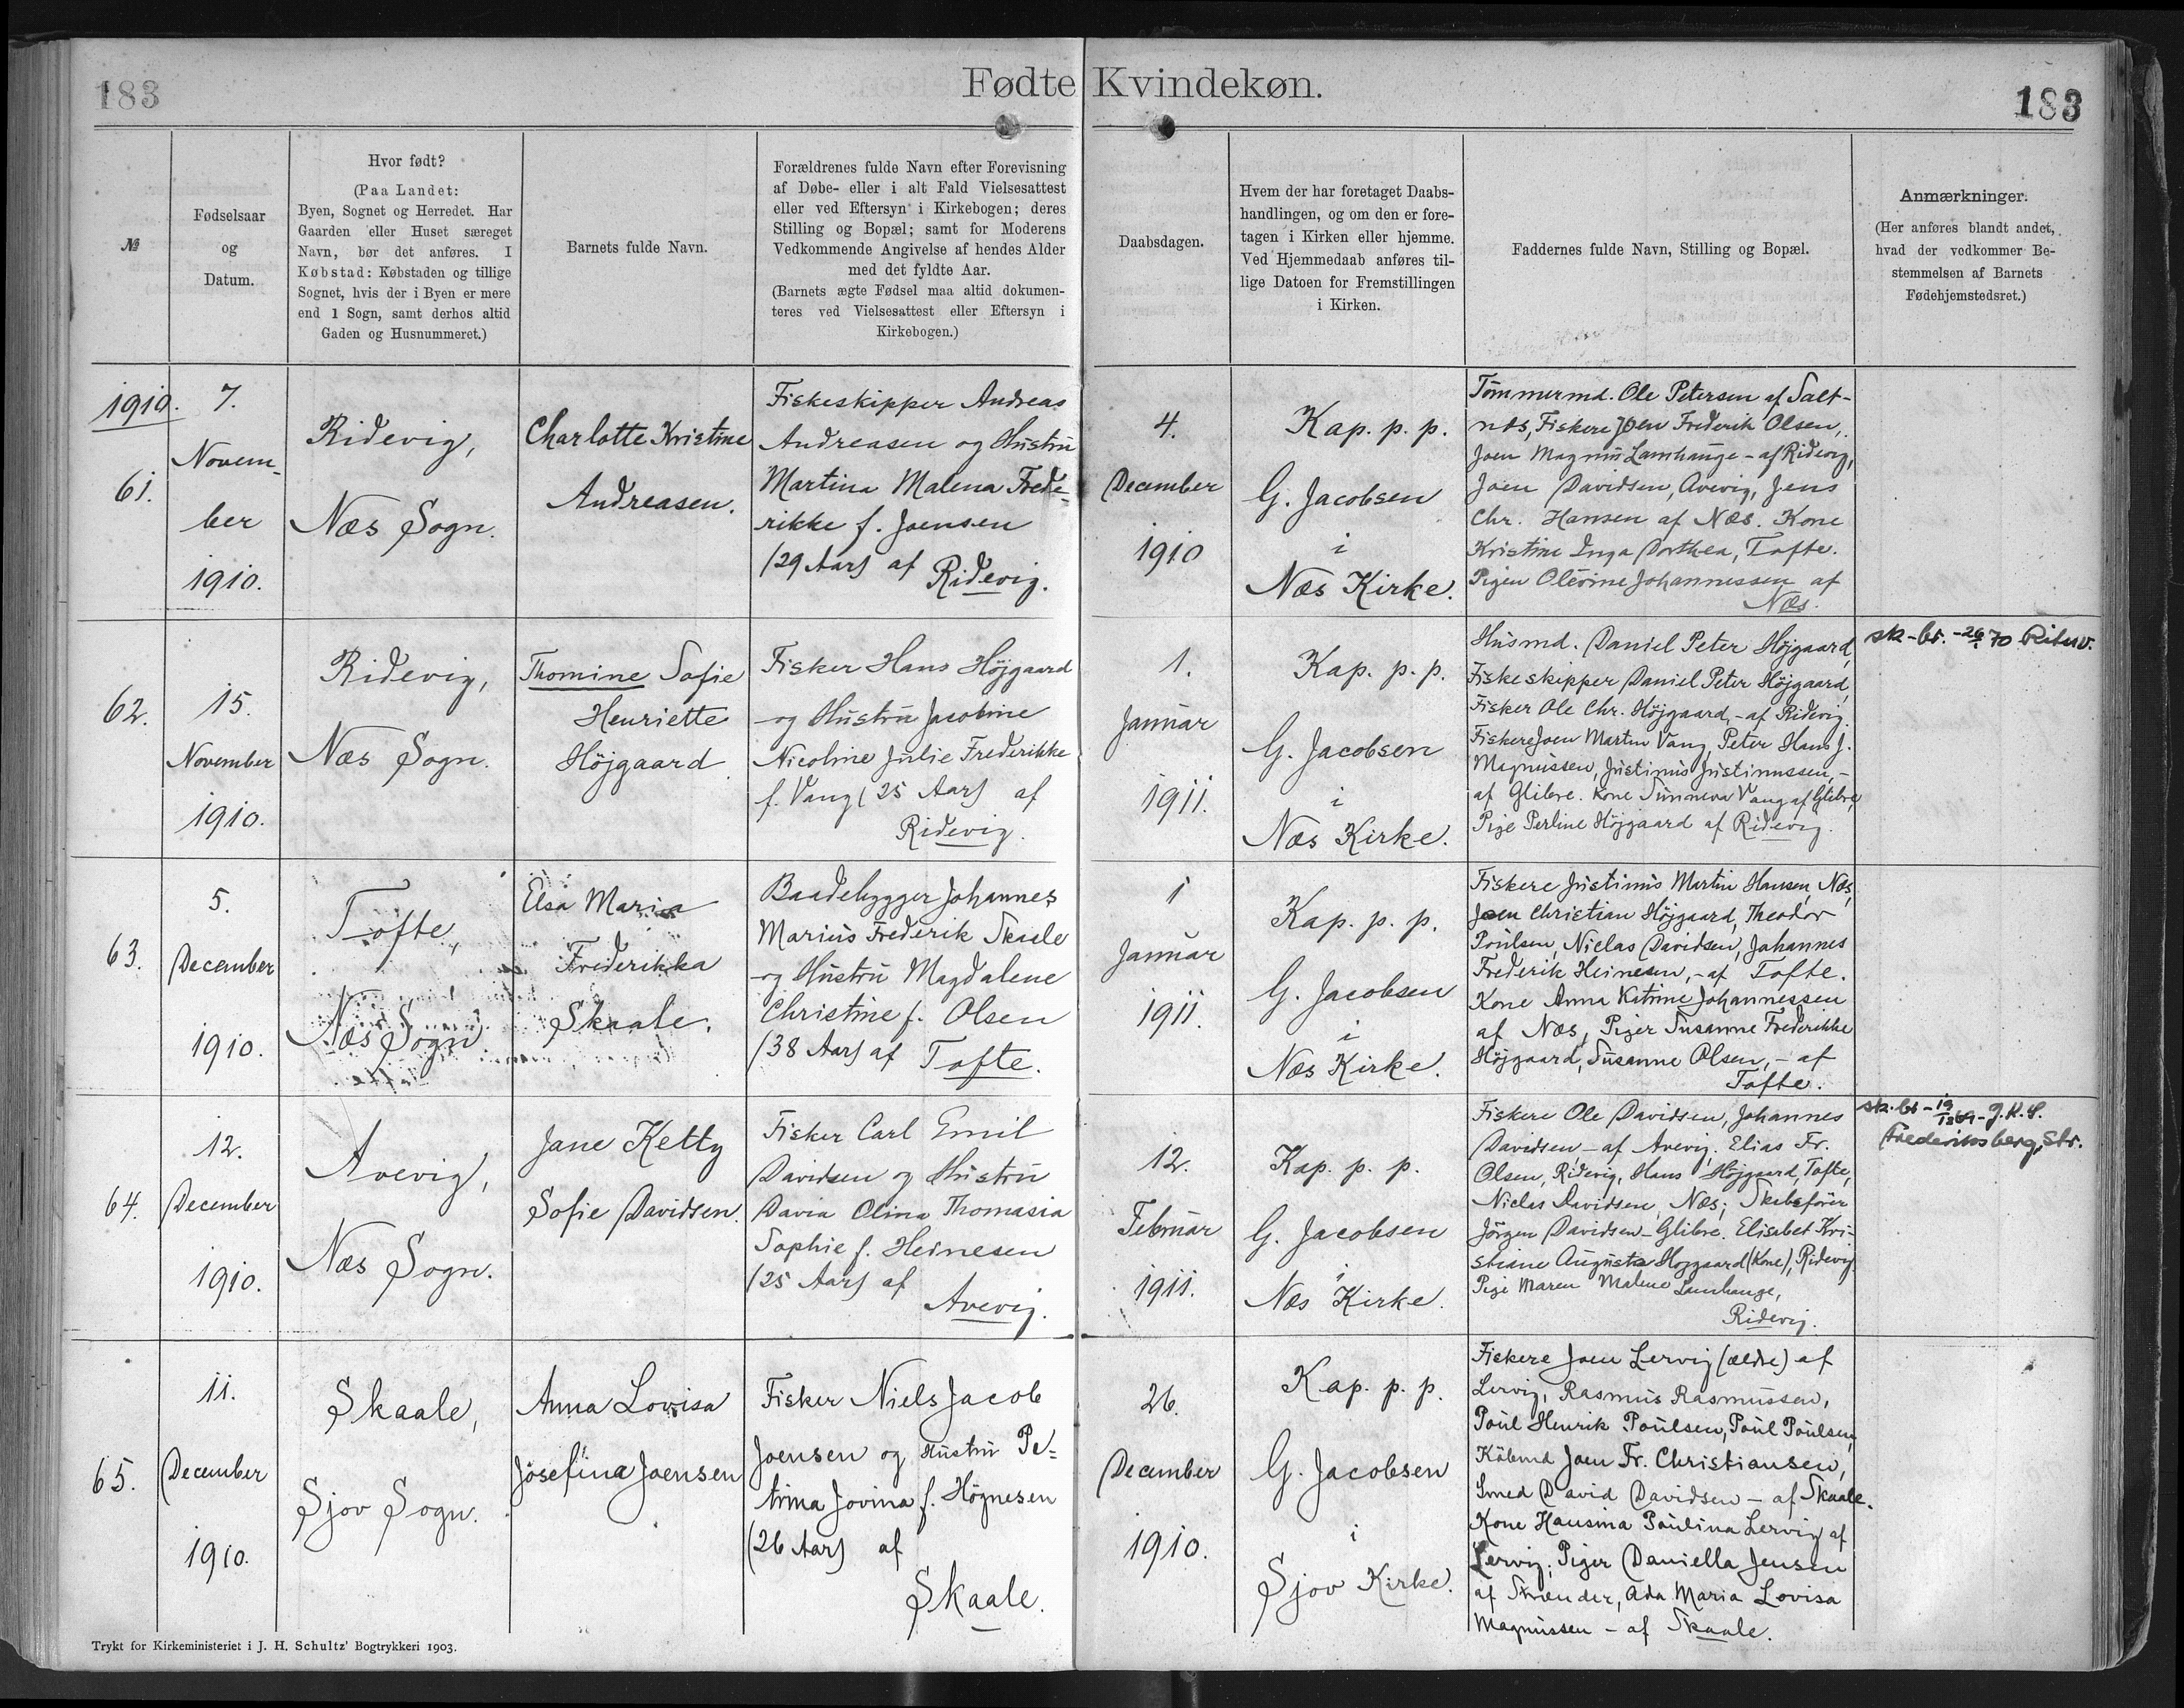 183
Fødte Kvindekøn.
183
№
Fødselsaar
og
Datum.
Hvor født?
(Paa Landet:
Byen, Sognet og Herredet. Har
Gaarden eller Huset særeget
Navn, bør det anføres. I
Købstad: Købstaden og tillige
Sognet, hvis der i Byen er mere
end 1 Sogn, samt derhos altid
Gaden og Husnummeret.)
Barnets fulde Navn.
Forældrenes fulde Navn efter Forevisning
af Døbe- eller i alt Fald Vielsesattest
eller ved Eftersyn i Kirkebogen; deres
Stilling og Bopæl; samt for Moderens
Vedkommende Angivelse af hendes Alder
med det fyldte Aar.
(Barnets ægte Fødsel maa altid dokumen-
teres ved Vielsesattest eller Eftersyn i
Kirkebogen.)
Daabsdagen.
Hvem der har foretaget Daabs-
handlingen, og om den er fore-
tagen i Kirken eller hjemme.
Ved Hjemmedaab anføres til-
lige Datoen for Fremstillingen
i Kirken.
Faddernes fulde Navn, Stilling og Bopæl.
Anmærkninger.
(Her anføres blandt andet,
hvad der vedkommer Be-
stemmelsen af Barnets
Fødehjemstedsret.)
1910.
61.
7.
Novem-
ber
1910.
Ridevig,
Næs Sogn.
Charlotte Kristine
Andreasen.
Fiskeskipper Andreas
Andreasen og Hustru
Martina Malena Frede-
rikke f. Joensen
(29 Aar) af
Ridevig.
4.
December
1910
Kap. p. p.
G. Jacobsen
i
Næs Kirke.
Tømmermd. Ole Petersen af Salt-
næs, Fiskere Joen Frederik Olsen,
Joen Magnus Lamhauge - af Ridevig,
Joen Davidsen, Avevig, Jens
Chr. Hansen af Næs. Kone
Kristine Inga Dorthea, Tofte.
Pigen Olevine Johannessen af
Næs.
62.
15.
November
1910.
Ridevig,
Næs Sogn.
Thomine Sofie
Henriette
Højgaard
Fisker Hans Højgaard
og Hustru Jacobine
Nicoline Julie Frederikke
f. Vang (25 Aar) af
Ridevig.
1.
Januar
1911.
Kap. p. p.
G. Jacobsen
i
Næs Kirke.
Husmd. Daniel Peter Højgaard,
Fiskeskipper Daniel Peter Højgaard,
Fisker Ole Chr. Højgaard, - af Ridevig.
Fiskere Joen Martin Vang, Peter Hans J.
Magnussen, Justinus Justinussen, -
af Glibre. Kone Sunneva Vang af Glibre,
Pige Perline Højgaard af Ridevig.
sk-br. - 70
63.
5.
December
1910.
Tofte,
Næs Sogn
Elsa Maria
Frederikka
Skaale.
Baadebygger Johannes
Marius Frederik Skaale
og Hustru Magdalene
Christine f. Olsen
(38 Aar) af Tofte.
1
Januar
1911.
Kap. p. p.
G. Jacobsen
i
Næs Kirke.
Fiskere Justinus Martin Hansen, Næs,
Joen Christian Højgaard, Theodor
Poulsen, Niclas Davidsen, Johannes
Frederik Heinesen, - af Tofte.
Kone Anna Katrine Johannessen
af Næs, Piger Susanne Frederikke
Højgaard, Susanne Olsen, - af
Tofte.
64.
12.
December
1910.
Avevig,
Næs Sogn.
Jane Ketty
Sofie Davidsen.
Fisker Carl Emil
Davidsen og Hustru
Davia Olina Thomasia
Sophie f. Heinesen
(25 Aar) af
Avevig.
12.
Februar
1911.
Kap. p. p.
G. Jacobsen
i
Næs Kirke.
Fiskere Ole Davidsen, Johannes
Davidsen - af Avevig, Elias Fr.
Olsen, Ridevig, Hans Højgaard, Tofte,
Niclas Davidsen, Næs; Skibsfører
Jörgen Davidsen - Glibre. Elisabet Kri-
stiane Augusta Højgaard (Kone), Ridevig.
Pige Maren Malene Lamhauge,
Ridevig.
sk.br -
Frederiksberg, Str.
65.
11.
December
1910.
Skaale,
Sjov Sogn.
Anna Lovisa
Josefina Joensen
Fisker Niels Jacob
Joensen og Hustru Pe-
trina Jovina f. Högnesen
(26 Aar) af
Skaale.
26.
December
1910.
Kap. p. p.
G. Jacobsen
i
Sjov Kirke.
Fiskere Joen Lervig (ældre) af
Lervig, Rasmus Rasmussen,
Poul Henrik Poulsen, Poul Poulsen,
Köbmd Joen Fr. Christiansen,
Smed David Davidsen - af Skaale.
Kone Hansina Paulina Lervig af
Lervig; Piger Daniella Jensen
af Strænder, Ada Maria Lovisa
Magnussen - af Skaale.
Trykt for Kirkeministeriet i J. H. Schultz' Bogtrykkeri 1903.